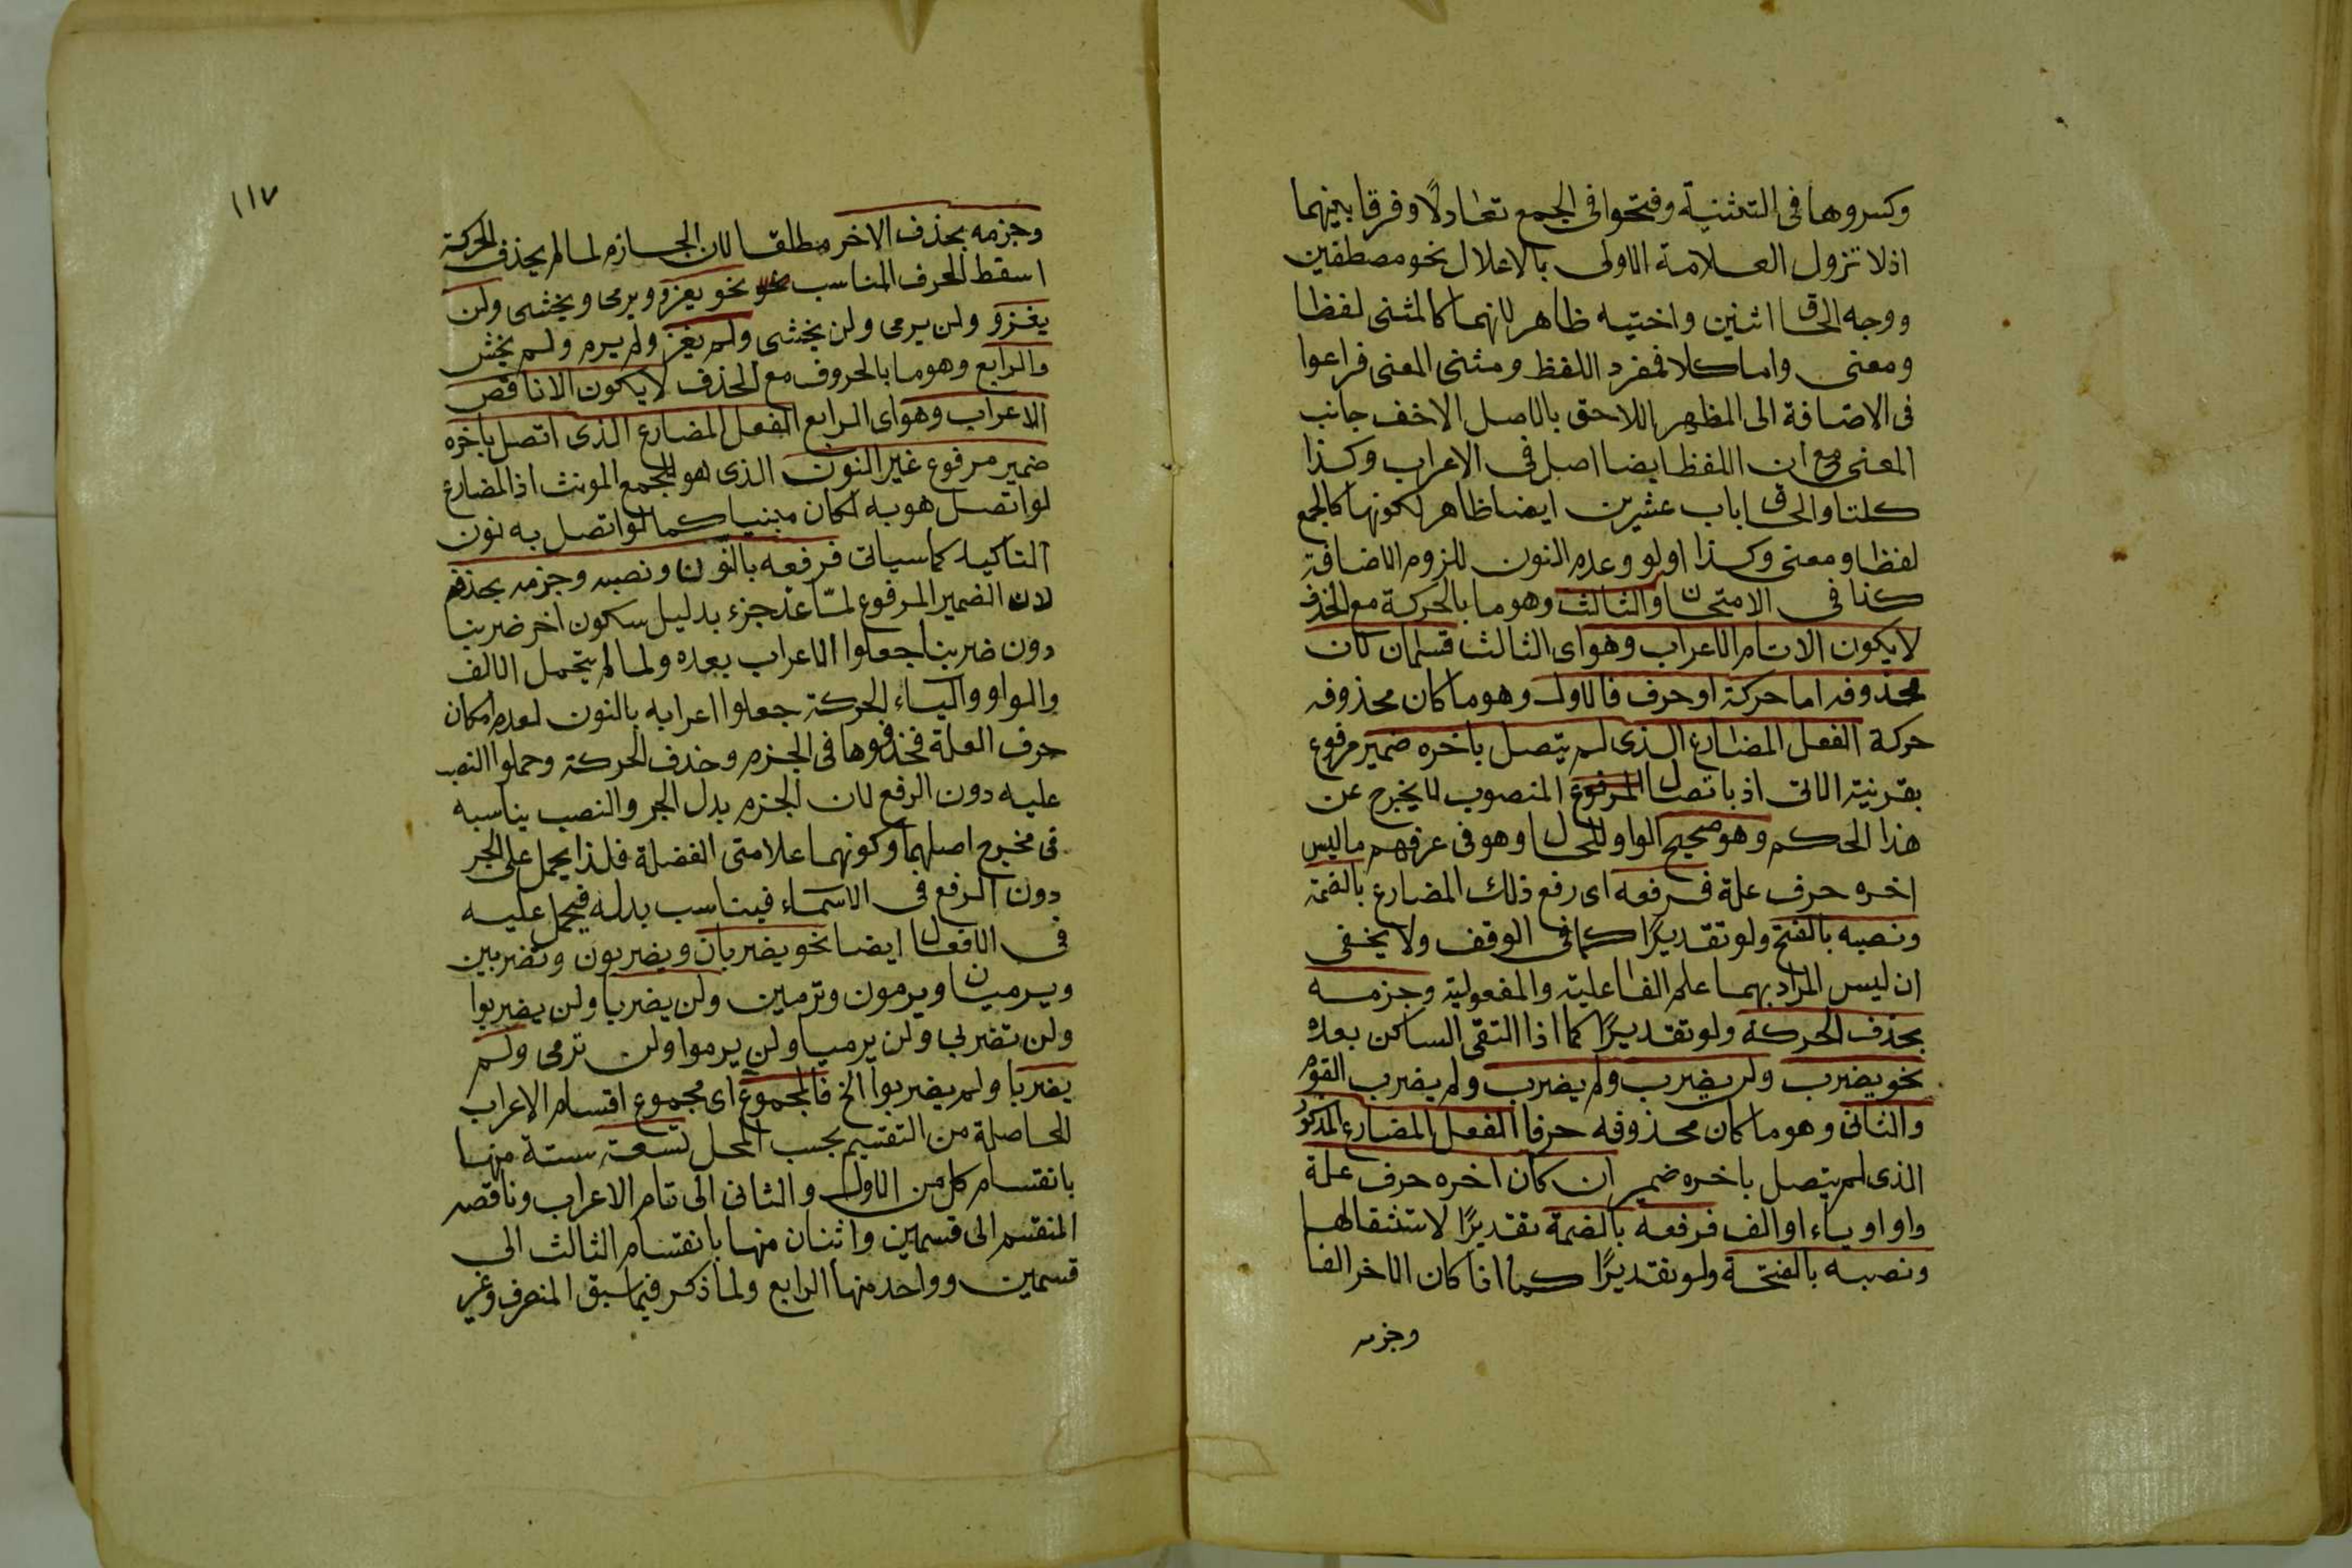 وكسروها فى التثنية وفتحوا فى الجمع تعادلًا وفرقا بينهما
اذ لا تزول العلامة الاولى بالاعلال نحو مصطفين
ووجه الحاق اثنين واختيه ظاهر لانهما كالمثنى لفظا
ومعنى واما كلا فمفرد اللفظ ومثنى المعنى فراعوا
فى الاضافة الى المظهر اللاحق بالاصل الاخف جانب
المعنى مع ان اللفظ ايضا اصل فى الاعراب وكذا
كلتا والحاق باب عشرين ايضا ظاهر لكونها كالجمع
لفظا ومعنى وكذا اولو وعدم النون للزوم الاضافة
كذا فى الامتحان والثالث وهو ما بالحركة مع الحذف
لا يكون الا تام الاعراب وهو اى الثالث قسمان لان
محذوفه اما حركة او حرف فالاول وهو ما كان محذوفه
حركة الفعل المضارع الذى لم يتصل باخره ضمير مرفوع
بقرينة الاتى اذ باتصال المرفوع المنصوب لا يخرج عن
هذا الحكم وهو صحيح الواو للحال وهو فى عرفهم ما ليس
اخره حرف علة فرفعه اى رفع ذلك المضارع بالضمة
ونصبه بالفتح ولو تقديرًا كما فى الوقف ولا يخفى
ان ليس المراد بهما علم الفاعلية والمفعولية وجزمه
بحذف الحركة ولو تقديرًا كما اذا التقى الساكن بعده
نحو يضرب ولن يضرب ولم يضرب ولم يضرب القوم
والثانى وهو ما كان محذوفه حرفا الفعل المضارع المذكور
الذى لم يتصل باخره ضمير ان كان اخره حرف علة
واو او ياء او الف فرفعه بالضمة تقديرًا لاستثقالها
ونصبه بالفتحة ولو تقديرًا كما اذا كان الاخر الفا
وجزمه
١١٧
وجزمه بحذف الاخر مطلقا لان الجازم لما لم يحذف الحركة
اسقط الحرف المناسب نحو يغزو ويرمى ويخشى ولن
يغزو ولن يرمى ولن يخشى ولم يغز ولم يرم ولم يخش
والرابع وهو ما بالحروف مع الحذف لا يكون الا ناقص
الاعراب وهو اى الرابع الفعل المضارع الذى اتصل باخره
ضمير مرفوع غير النون الذى هو للجمع المونث اذ المضارع
لو اتصل هو به لكان مبنيا كما لو اتصل به نون
التاكيد كما سياتى فرفعه بالنون ونصبه وجزمه بحذفه
لان الضمير المرفوع لما عد جزء بدليل سكون اخر ضربنا
دون ضربنا جعلوا الاعراب بعده ولما لم يتحمل الالف
والواو والياء الحركة جعلوا اعرابه بالنون لعدم امكان
حرف العلة فحذفوها فى الجزم وحذف الحركة وحملوا النصب
عليه دون الرفع لان الجزم بدل الجر والنصب يناسبه
فى مخرج اصلهما وكونهما علامتى الفضلة فلذا يحمل على الجر
دون الرفع فى الاسماء فيناسب بدله فيحمل عليه
فى الافعال ايضا نحو يضربان ويضربون وتضربين
ويرميان ويرمون وترمين ولن يضربا ولن يضربوا
ولن تضربى ولن يرميا ولن يرموا ولن ترمى ولم
يضربا ولم يضربوا الخ فالمجموع اى مجموع اقسام الاعراب
الحاصلة من التقسيم بحسب المحل تسعة ستة منها
بانقسام كل من الاول والثانى الى تام الاعراب وناقصه
المنقسم الى قسمين واثنان منها بانقسام الثالث الى
قسمين وواحد منها الرابع ولما ذكر فيما سبق المنصرف وغير